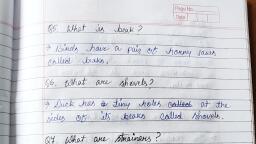 Page No.
Date
Q5. What is beak?
→ Birds have a pair of horny jaws
called beaks.
Q6. What are shovels?
→ Duck has tiny holes at the
sides of its beaks called shovels.
Q7. What are strainers?